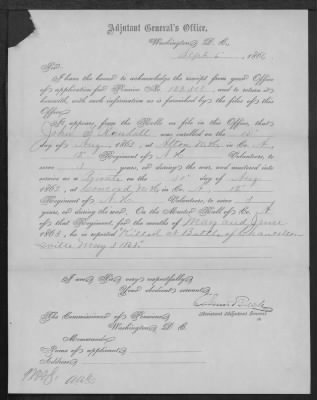 Adjutant General's Office,
Washington, D. C.
Sept 6, 186
Sir:
I have the honor to acknowledge the receipt from your Office
of application for Pension No. and to return it
herewith, with such information as is furnished by the files of this
Office.
It appears, from the Rolls on file in this Office, that
John S. Randall was enrolled on the 10"
day of Aug, 1862, at Alton N.H. in Co. A,
12" Regiment of N.H. Volunteers, to
serve 3 years, or during the war, and mustered into
service as a Private on the 30" day of Aug,
1862, at Concord N.H. in Co. A, 12"
Regiment of N.H. Volunteers, to serve 3
years, or during the war. On the Muster Roll of Co. A
of that Regiment for the months of May and June,
1863, he is reported "Killed at Battle of Chancellors-
ville May 3 1863."
I am Sir, very respectfully,
Your obedient servant,
Assistant Adjutant General
The Commissioner of Pensions,
Washington, D. C.
Memoranda:
Name of applicant
Address